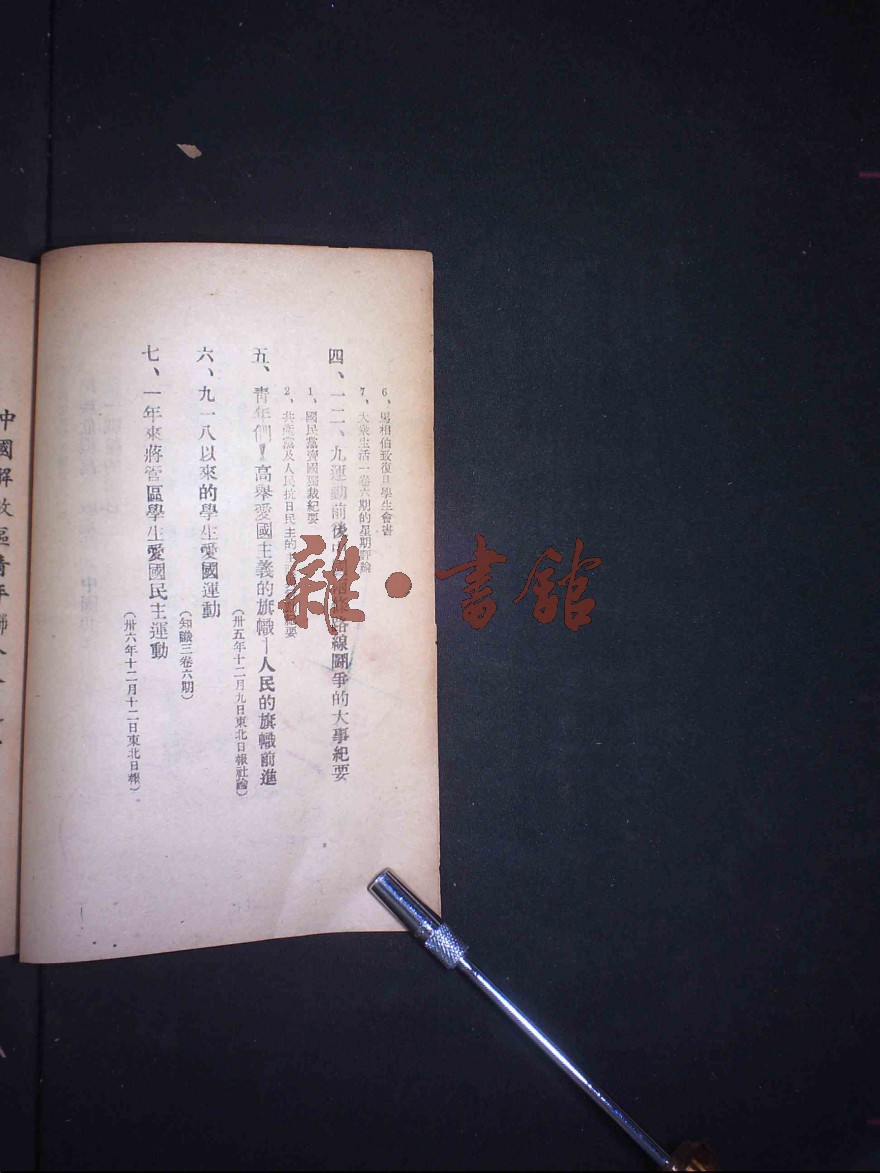 6、馬相伯致復旦學生會書
7、大衆生活一卷六期的星期評論
四、一二、九運動前後 路線鬪爭的大事紀要
1、國民黨賣國獨裁紀要
2、共產黨及人民抗日民主的主 紀要
五、靑年們！高舉愛國主義的旗幟—人民的旗幟前進
（卅五年十二月九日東北日報社論）
六、九一八以來的學生愛國運動
（知識三卷六期）
七、一年來蔣管區學生愛國民主運動
（卅六年十二月十二日東北日報）
中國解放區靑年聯
雜·書館